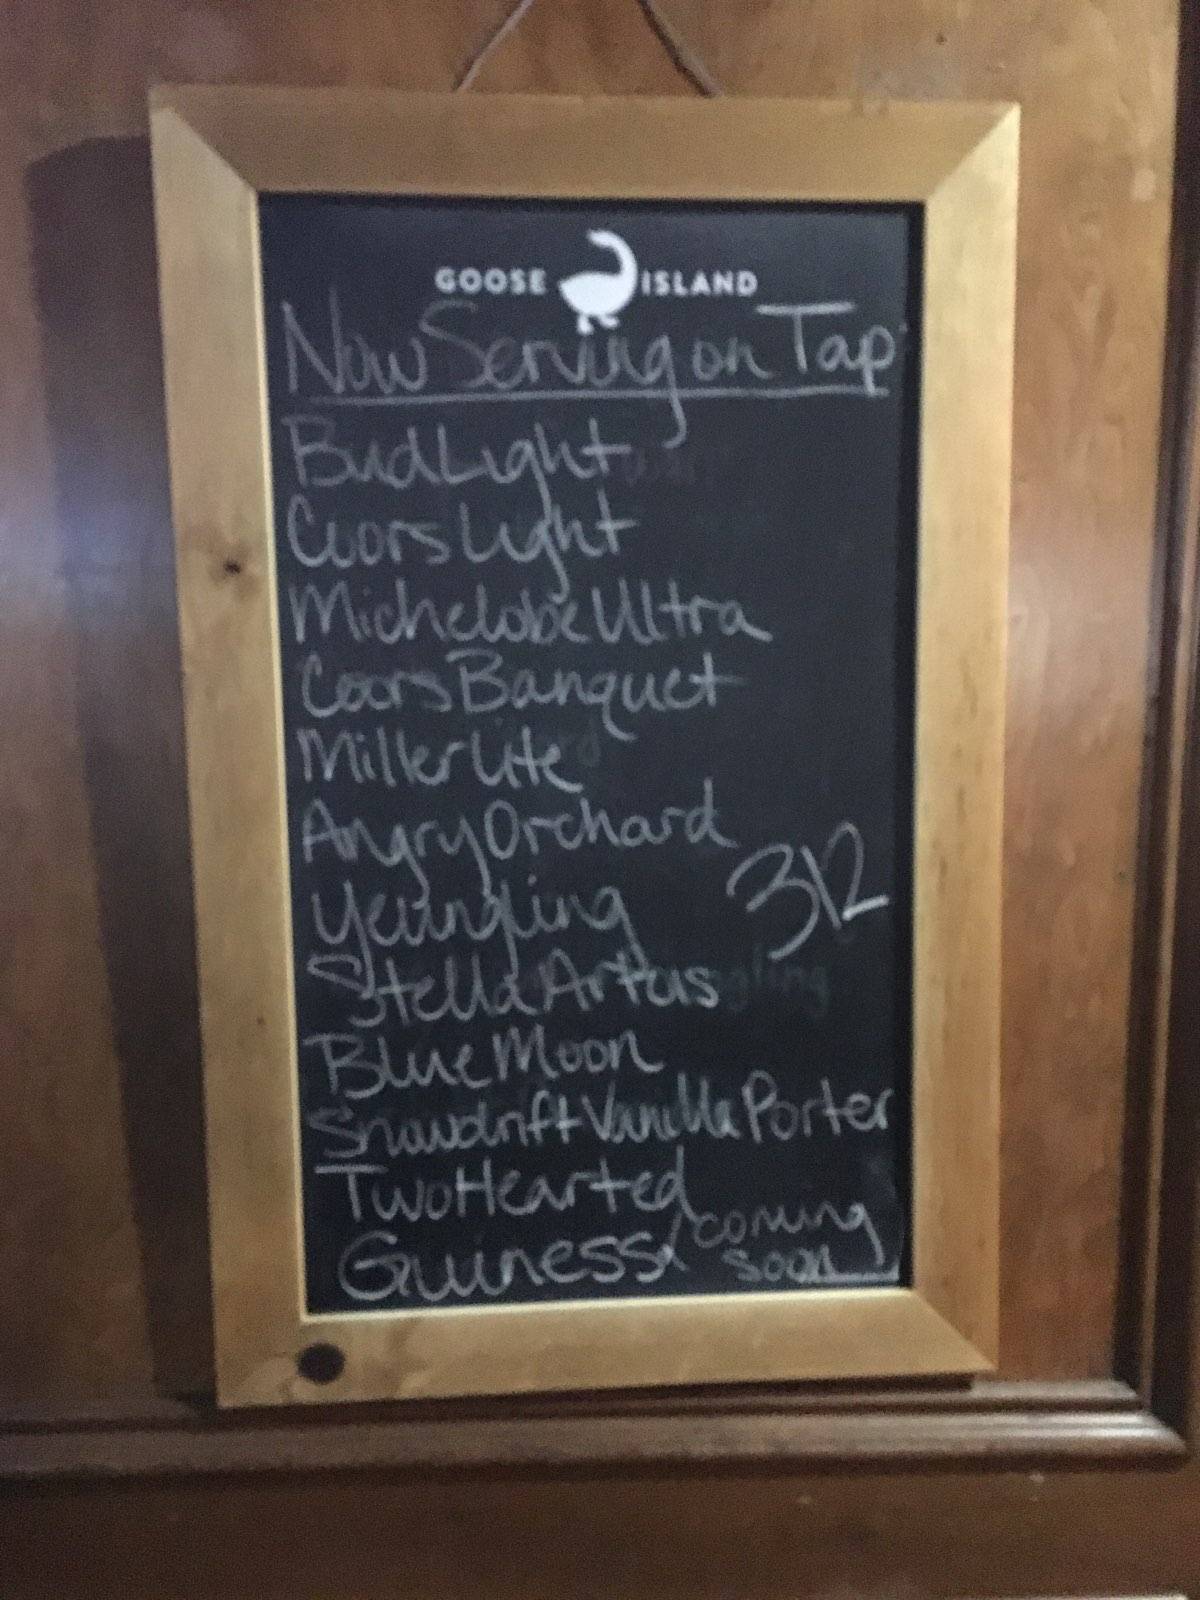 GOOSE ISLAND
Now Serving on Tap
Bud Light
Coors Light
Michelobe Ultra
Coors Banquet
Miller Lite
Angry Orchard
Yeungling
312
Stella Artois
Blue Moon
Snowdrift Vanilla Porter
Two Hearted
Guiness
coming
soon